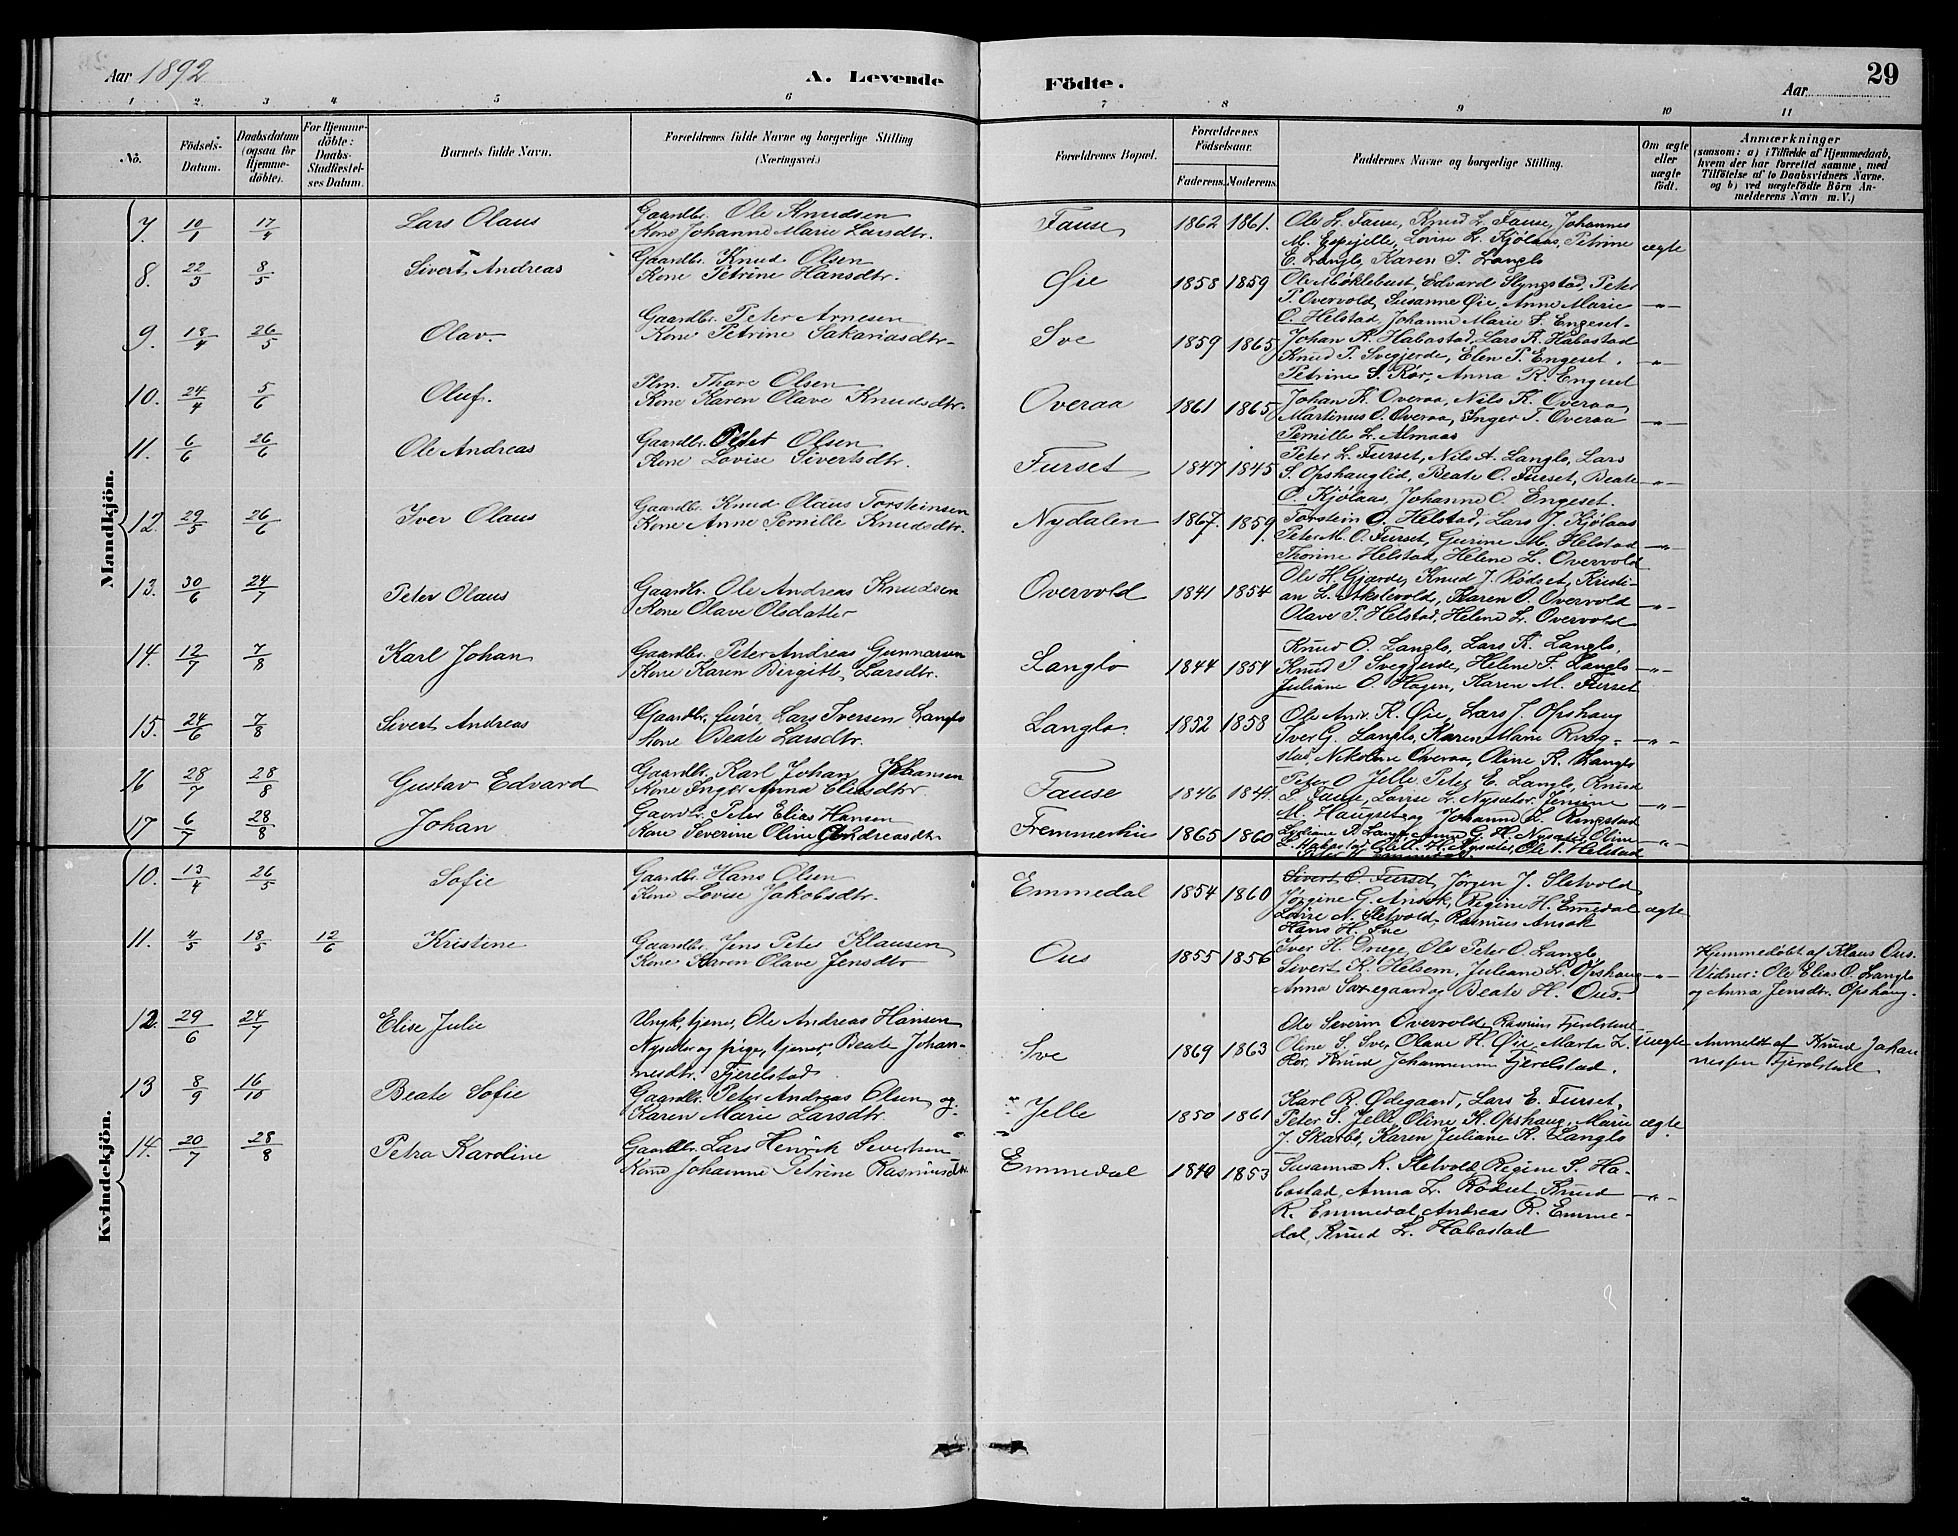 Aar 1892
A. Levende
Födte.
Aar
29
1 2 3 4 5 6 7 8 9 10 11
No.
Födsels-
Datum.
Daabsdatum
(ogsaa for
Hjemme-
döbte).
For Hjemme-
döbte:
Daabs-
Stadfæstel-
ses Datum.
Barnets fulde Navn.
Forældrenes fulde Navne og borgerlige Stilling
(Næringsvei.)
Forældrenes Bopæl.
Forældrenes
Födselsaar.
Faderens. Moderens.
Faddernes Navne og borgerlige Stilling.
Om ægte
eller
uægte
födt.
Anmærkninger
(saasom: a) i Tilfælde af Hjemmedaab,
hvem der har forrettet samme, med
Tilföielse af to Daabsvidners Navne.
og b) ved uægtefödte Börn An-
melderens Navn m. V.)
Mandkjön.
7. 10/1 17/4 Lars Olaus
Gaardbr. Ole Knudsen
Kone Johanne Marie Larsdtr.
Fause 1862 1861.
Ole L. Fause, Knud L. Fause, Johannes
M. Espejelle, Lovise L. Kjölaas, Petrine
E. Langlo, Karen P. Langlo
ægte
8. 22/3 8/5 Sivert Andreas
Gaardbr. Knud Olsen
Kone Petrine Hansdtr.
Øie 1858 1859
Ole Möklebust, Edvard Slyngstad, Peter
P. Overvold, Susanne Øie, Anne Marie
O. Helstad, Johanne Marie F. Engeset-
-"-
9. 13/4 26/5 Olav.
Gaardbr. Peter Arnesen
Kone Petrine Sakariasdtr.
Sve 1859 1865
Johan K. Habostad, Lars K. Habostad
Knud P. Svegjerde, Elen P. Engeset,
Petrine S. Rör, Anna R. Engeset
-"-
10. 24/4 5/6 Oluf.
Plm. Thore Olsen
Kone Karen Olave Knudsdtr.
Overaa 1861 1865
Johan K. Overaa, Nils K. Overaa,
Martinus O. Overaa, Inger T. Overaa
Pernille L. Almaas
-"-
11. 6/6 26/6 Ole Andreas
Gaardbr. Olsen
Kone Lovise Sivertsdtr.
Furset 1847 1845
Peter L. Furset, Nils A. Langlo, Lars
S. Opshauglid, Beate O. Furset, Beate
O. Kjölaas, Johanne O. Engeset.
-"-
12. 29/5 26/6 Iver Olaus
Gaardbr. Knud Olaus Torsteinsen
Kone Anne Pernille Knudsdtr.
Nydalen 1867. 1859.
Torstein O. Helstad, Lars J. Kjölaas
Peter M. O. Furset, Gurine M. Helstad
Thorine Helstad, Helene L. Overvold
-"-
13. 30/6 24/7 Peter Olaus
Gaardbr. Ole Andreas Knudsen
Kone Olave Olsdatter
Overvold 1841 1854
Ole H. Gjærde, Knud J. Rödset, Kristi-
an L. Akslevold, Karen O. Overvold
Olave P. Helstad, Helene L. Overvold
-"-
14. 12/7 7/8 Karl Johan
Gaardbr. Peter Andreas Gunnarsen
Kone Karen Birgitte Larsdtr.
Langlo 1844 1854
Knud O. Langlo, Lars K. Langlo,
Knud P. Svegjerde, Helene F. Langlo
Juliane O. Hagen, Karen M. Furset
-"-
15. 24/6 7/8 Sivert Andreas
Gaardbr. furér Lars Iversen Langlo
Kone Beate Larsdtr.
Langlo. 1852 1858
Ole And. K. Øie, Lars J. Opshaug
Iver G. Langlo, Karen Marie Ring-
stad, Nikoline Overaa, Oline K. Langlo
-"-
16 28/7 28/8 Gustav Edvard
Gaardbr. Karl Johan Johansen
Kone Inger Anna Eliasdtr.
Fause 1846 1841.
Peter O. Jelle, Peter E. Langlo, Knud
L. Fause, Lovise L. Nysæter, Jensine
M. Haugset og Johanne L. Ringstad
-"-
17 6/7 28/8 Johan
Gaardbr. Peter Elias Hansen
Kone Severine Oline Andreasdtr.
Fremmerlii 1865 1860
-"-
Kvindekjön.
10. 13/4 26/5 Sofie
Gaardbr. Hans Olsen
Kone Lovise Jakobsdtr.
Emmedal 1854 1860
Sivert O. Furset, Jörgen J. Sletvold
Jörgine G. Ansok, Regine H. Emmedal
Lovise N. Sletvold, Rasmus Ansok
Hans H. Sve
ægte
11. 4/5 18/5 12/6 Kristine
Gaardbr. Jens Peter Klausen
Kone Karen Olave Jensdtr
Ous 1855 1856
Iver H. Drege, Ole Peter O. Langlo,
Sivert K. Helsem, Juliane L. Opshaug
Anna Saxegaard og Beate H. Ous.
-"-
Hjemmedöbt af Klaus Ous.
Vidner: Ole Elias O. Langlo
og Anna Jensdtr. Opshaug.
12. 29/6 24/7 Elise Julie
Ungk., tjener, Ole Andreas Hansen
Nysæter og pige, tjener, Beate Johan-
nesdtr. Fjerelstad
Sve 1869 1863
Ole Severin Overvold, Rasmus Fjerelstad
Oline S. Sve, Olave H. Øie, Marta L.
Rör, Knud Johannesen Fjerelstad.
Uægte
Anmeldt af Knud Johan
nessen Fjerelstad
13 8/9 16/10 Beate Sofie
Gaardbr. Peter Andreas Olsen og
Karen Marie Larsdtr.
Jelle 1850 1861
Karl R. Ødegaard, Lars E. Furset,
Peter S. Jelle, Oline K. Opshaug, Marie
J. Skarbö, Karen Juliane K. Langlo
ægte.
14. 20/7 28/8 Petra Karoline
Gaardbr. Lars Henrik Sivertsen
Kone Johanne Petrine Rasmusdtr.
Emmedal 1840 1853
Susanne K. Sletvold, Regine S. Ha-
bostad, Anna L. Rödset, Knud
R. Emmedal, Andreas R. Emme-
dal, Knud L. Habostad
-"-